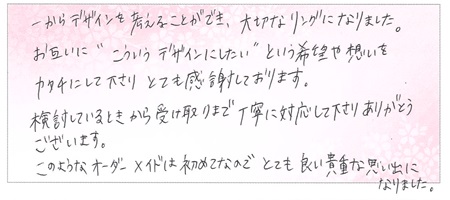 一からデザインを考えることができ、大切なリングになりました。
お互いに"こういうデザインにしたい"という希望や想いを
カタチにして下さり とても感謝しております。
検討しているときから受け取りまで丁寧に対応して下さりありがとう
ございます。
このようなオーダーメイドは初めてなので とても良い貴重な思い出に
なりました。